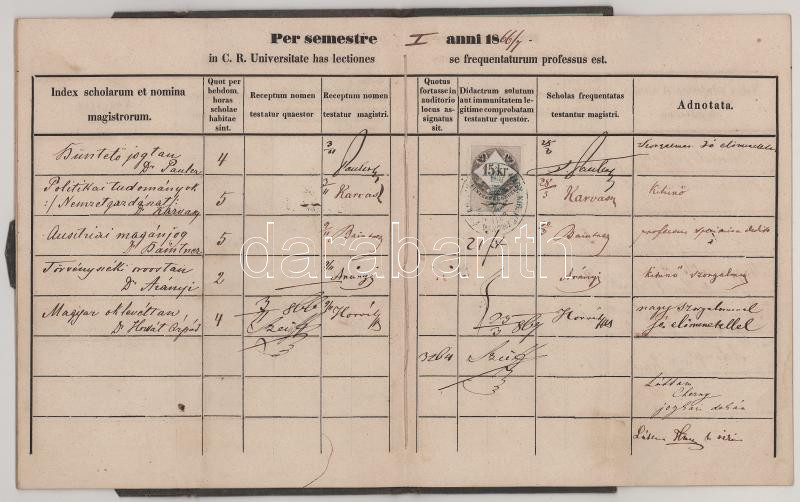 Per semestre I anni 1866/7.
in C. R. Universitate has lectiones se frequentaturum professus est.
Index scholarum et nomina
magistrorum.
Quot per
hebdom.
horas
scholae
habitae
sint.
Receptum nomen
testatur quaestor
Receptum nomen
testatur magistri.
Quotus
fortasse in
auditorio
locus as-
signatus
sit.
Didactrum solutum
aut immunitatem le-
gitime comprobatam
testantur questor.
Scholas frequentatas
testantur magistri.
Adnotata.
Büntető jogtan
Dr Pauler
4
Pauler
15 kr
Pauler
Szorgalmas jó előmenetel
Politikai tudományok
:/ Nemzetgazdászat /:
Dr Karvasy
5
Karvasy
28/3
Karvasy
kitünő
Ausztriai magánjog
Dr Baintner
5
Baintner
21/x
Baintner
Törvényszéki orvostan
Dr Arányi
2
Arányi
Arányi
kitünő szorgalmu
Magyar oklevéltan
Dr Horvát Árpád
4
3/ 866
Horvát
867
Horvát
nagy szorgalommal
jó előmenetellel
3264
Láttam
joghári dékán
Láttam
databanth